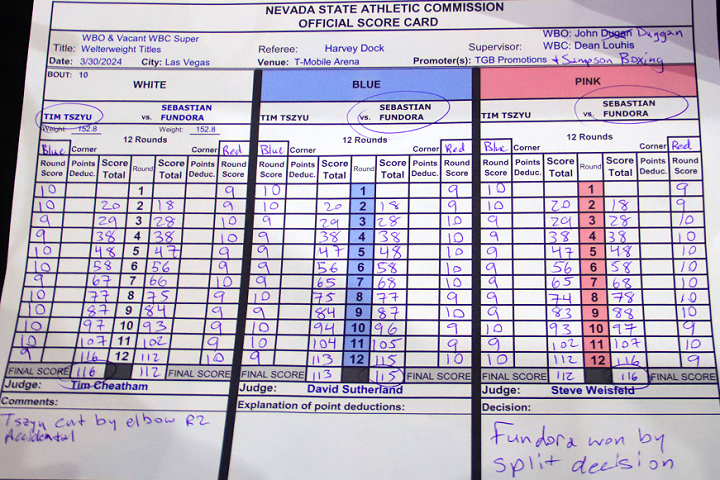 NEVADA STATE ATHLETIC COMMISSION
OFFICIAL SCORE CARD
WBO & Vacant WBC Super WBO: John Dugan Duggan
Title: Welterweight Titles Referee: Harvey Dock Supervisor: WBC: Dean Louhis
Date: 3/30/2024 City: Las Vegas Venue: T-Mobile Arena Promoter(s): TGB Promotions + Simpson Boxing
BOUT: 10
WHITE BLUE PINK
SEBASTIAN SEBASTIAN SEBASTIAN
TIM TSZYU vs. FUNDORA TIM TSZYU vs. FUNDORA TIM TSZYU vs. FUNDORA
Weight: 152.8 Weight: 152.8
12 Rounds 12 Rounds 12 Rounds
Blue Corner Corner Red Blue Corner Corner Red Blue Corner Corner Red
Round Score Points Deduc. Score Total Round Score Total Points Deduc. Round Score Round Score Points Deduc. Score Total Round Score Total Points Deduc. Round Score Round Score Points Deduc. Score Total Round Score Total Points Deduc. Round Score
10 1 9 10 1 9 10 1 9
10 20 2 18 9 10 20 2 18 9 10 20 2 18 9
9 29 3 28 10 9 29 3 28 10 9 29 3 28 10
9 38 4 38 10 9 38 4 38 10 9 38 4 38 10
10 48 5 47 9 9 47 5 48 10 9 47 5 48 10
10 58 6 56 9 9 56 6 58 10 9 56 6 58 10
9 67 7 66 10 9 65 7 68 10 9 65 7 68 10
10 77 8 75 9 10 75 8 77 9 9 74 8 78 10
10 87 9 84 9 9 84 9 87 10 9 83 9 88 10
10 97 10 93 9 10 94 10 96 9 10 93 10 97 9
10 107 11 102 9 10 104 11 105 9 9 102 11 107 10
9 116 12 112 10 9 113 12 115 10 10 112 12 116 9
FINAL SCORE 116 112 FINAL SCORE FINAL SCORE 113 115 FINAL SCORE FINAL SCORE 112 116 FINAL SCORE
Judge: Tim Cheatham Judge: David Sutherland Judge: Steve Weisfeld
Comments: Explanation of point deductions: Decision:
Tszyu cut by elbow R2
Accidental
Fundora won by
split decision